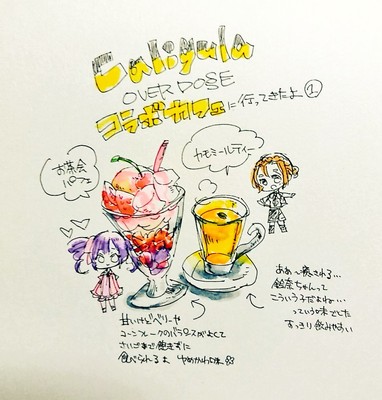 Caligula
OVER DOSE
コラボカフェに行ってきたよ①
お茶会
パフェ
カモミールティー
甘いけどベリーや
コーンフレークのバランスがよくて
さいごまで飽きずに
食べられるよ ゆめかわな味
ああ〜癒される…
鈴奈ちゃんって
こういう子だよね…
っていう味でした
すっきり飲みやすい